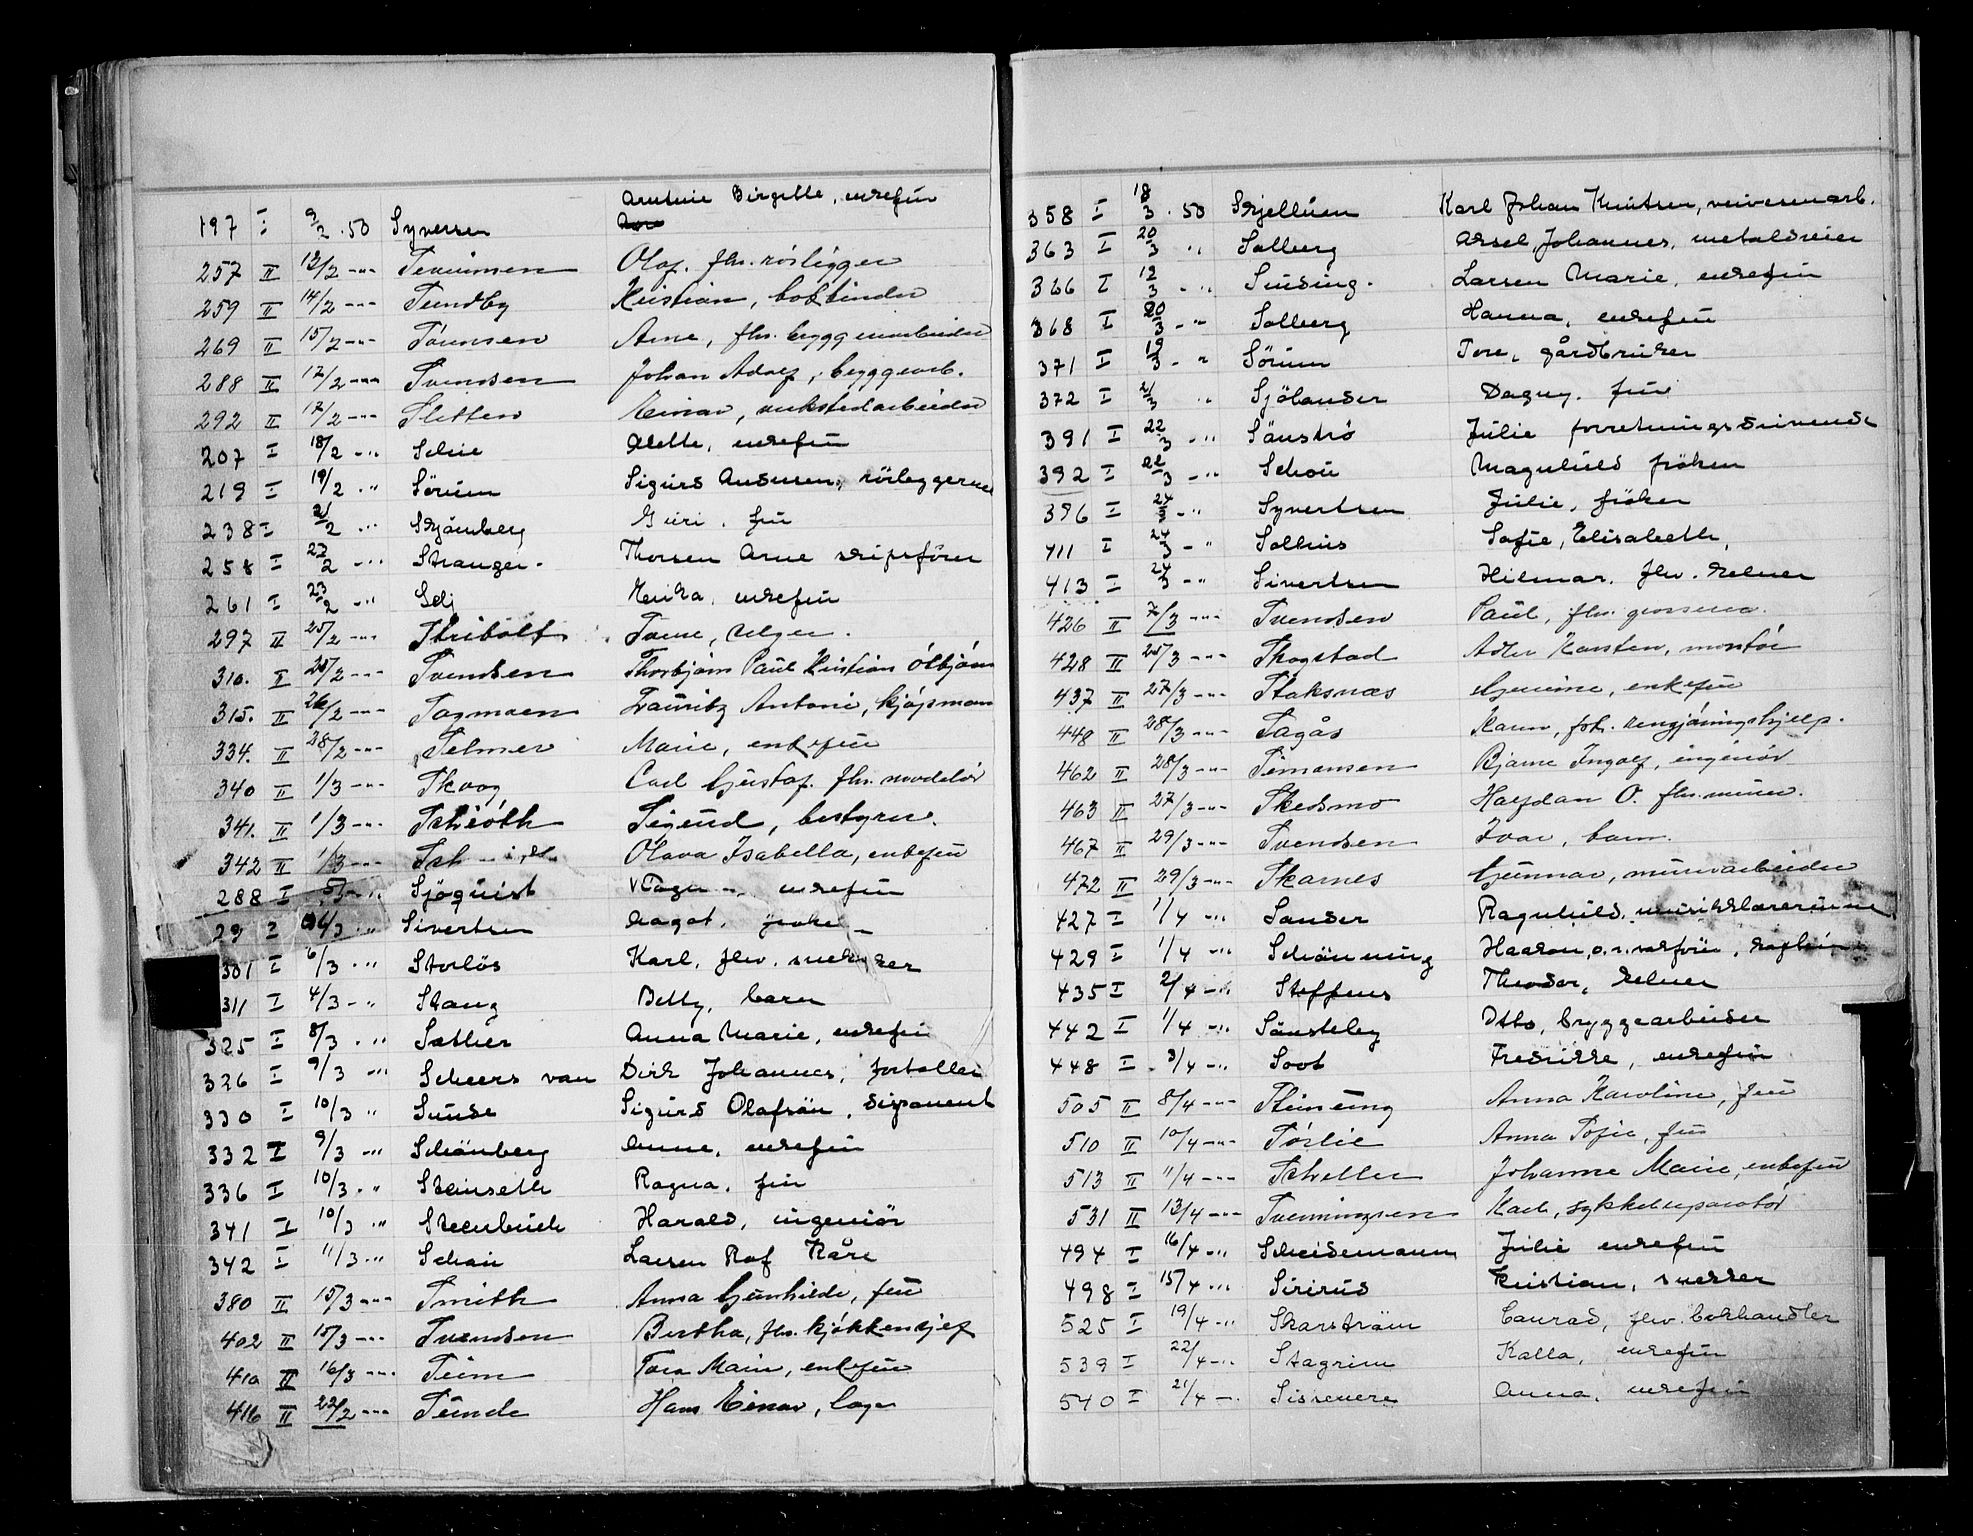 Antonie Birgitte, enkefru
197 I 9/2 .50 Syversen
257 II 13/2 -"- Simonsen Olaf, fhv. rørlegger
259 II 14/2 -"- Sundby Kristian, bokbinder
269 II 15/2 -"- Sörensen Arne, fhv. bryggeriarbeider
288 II 17/2 -"- Svendsen Johan Adolf, byggearb.
292 II 17/2 -"- Sletten Einar, verkstedarbeider
207 I 18/2 -" Schie Alette, enkefru
219 I 19/2 ." Sörum Sigurd Andersen, rörlegger
238 I 21/2 ." Skjönberg Guri, fru
258 I 22/2 -" Stranger. Thorsen Arne skipsförer
261 I 23/2 -" Selj Erika, enkefru
297 II 25/2 -"- Stribolt Signe, selger.
310. II 25/2 -"- Svendsen Thorbjörn Paul Kristian
315. II 26/2 -"- Sagmoen Lauritz Antoni, kjøpmann
334. II 28/2 -"- Selmer Marie, enkefru
340 II 1/3 -"- Skoog Carl Gustaf, fhv.
341. II 1/3 -"- Schiöth Sigurd, bestyrer.
342 II 1/3 -"- Olava Isabella, enkefru
288 I 5/ Sjöquist enkefru
29 I 6/3 ." Sivertsen Aagot, fröken
301 I 6/3 ." Storlös Karl, fhv. snekker
311 I 4/3 -" Stang Betty, barn
325 I 8/3 ." Sæther Anna Marie, enkefru
326 I 9/3 -" Scheers van Dirk Johannes, fortoller
330 I 10/3 " Sunde Sigurd Olafsön, disponent
332 I 9/3 -" Schönberg Anne, enkefru
336 I 10/3 ." Steinseth Ragna, fru
341 I 10/3 " Steenbuch Harald, ingeniör
342 I 11/3 ." Schau Larsen Rolf Kåre
380 II 15/3 -"- Smith Anna Gunhilde, fru
402 II 15/3 -"- Svendsen Bertha, fhv. kjøkkensjef
410 II 16/3 -"- Seim Tora Marie, enkefru
416 II 22/2 -"- Sunde Hans Einar, lager
358 I 18/3 .50 Skjellum Karl Johan Knutsen, veivesenarb.
363 I 20/3 " Solberg Aksel Johannes, metaldreier
366 I 12/3 -" Sinding. Larsen Marie, enkefru
368 I 20/3 -" Solberg Hanna, enkefru
371 I 19/3 - " Sörum Tore, gårdbruker
372 I 21/3 " Sjölander Dagny. fru
391 I 22/3 -" Sänströ Julie forretningsdrivende
392 I 22/3 -" Schou Magnhild fröken
396 I 24/3 -" Syvertsen Julie, fröken
411 I 24/3 -" Solhus Sofie, Elisabeth,
413 I 24/3 -" Sivertsen Hilmar. fhv. kelner
426 II 7/3 -"- Svendsen Paul, fhv. grosserer.
428 II 25/3 -"- Skogstad Adler Karsten, montör
437 II 27/3 -"- Staksnæs Gjerine, enkefru
448 II 28/3 -"- Sagås Karen, frk. rengjöringshjelp.
462 II 28/3 -"- Simensen Bjarne Ingolf, ingeniör
463 II 27/3 -"- Skedsmo Halfdan O. fhv. murer.
467 II 29/3 -"- Svendsen Ivar, barn.
472 II 29/3 -"- Skarnes Gunnar, murarbeider
427 I 1/4 -" Sander Ragnhild, musikklærerinne
429 I 1/4 -" Schönning Haakon, o.r.sakfører,
435 I 2/4 -" Steffens Theodor, kelner
442 I 1/4 -" Sänsteby Otto, bryggearbeider
448 I . 3/4 -" Soot Fredrikke, enkefru
505 II 8/4 -"- Steneing Anna Karoline, fru
510 II 10/4 -"- Sørlie Anna Sofie, fru
513 II 11/4 -"- Scheller Johanne Marie, enkefru
531 II 13/4 -"- Svenningsen Karl, sykkelreparatør
494 I 16/4 -" Scheidemann Julie enkefru
498 I 15/4 -" Sirirud Kristian, snekker
525 I 19/4 -" Skarström Conrad, fhv. bokhandler
539 I 22/4 -" Stagrim Kalla, enkefru
540 I 21/4 - Sissenere Anna, enkefru